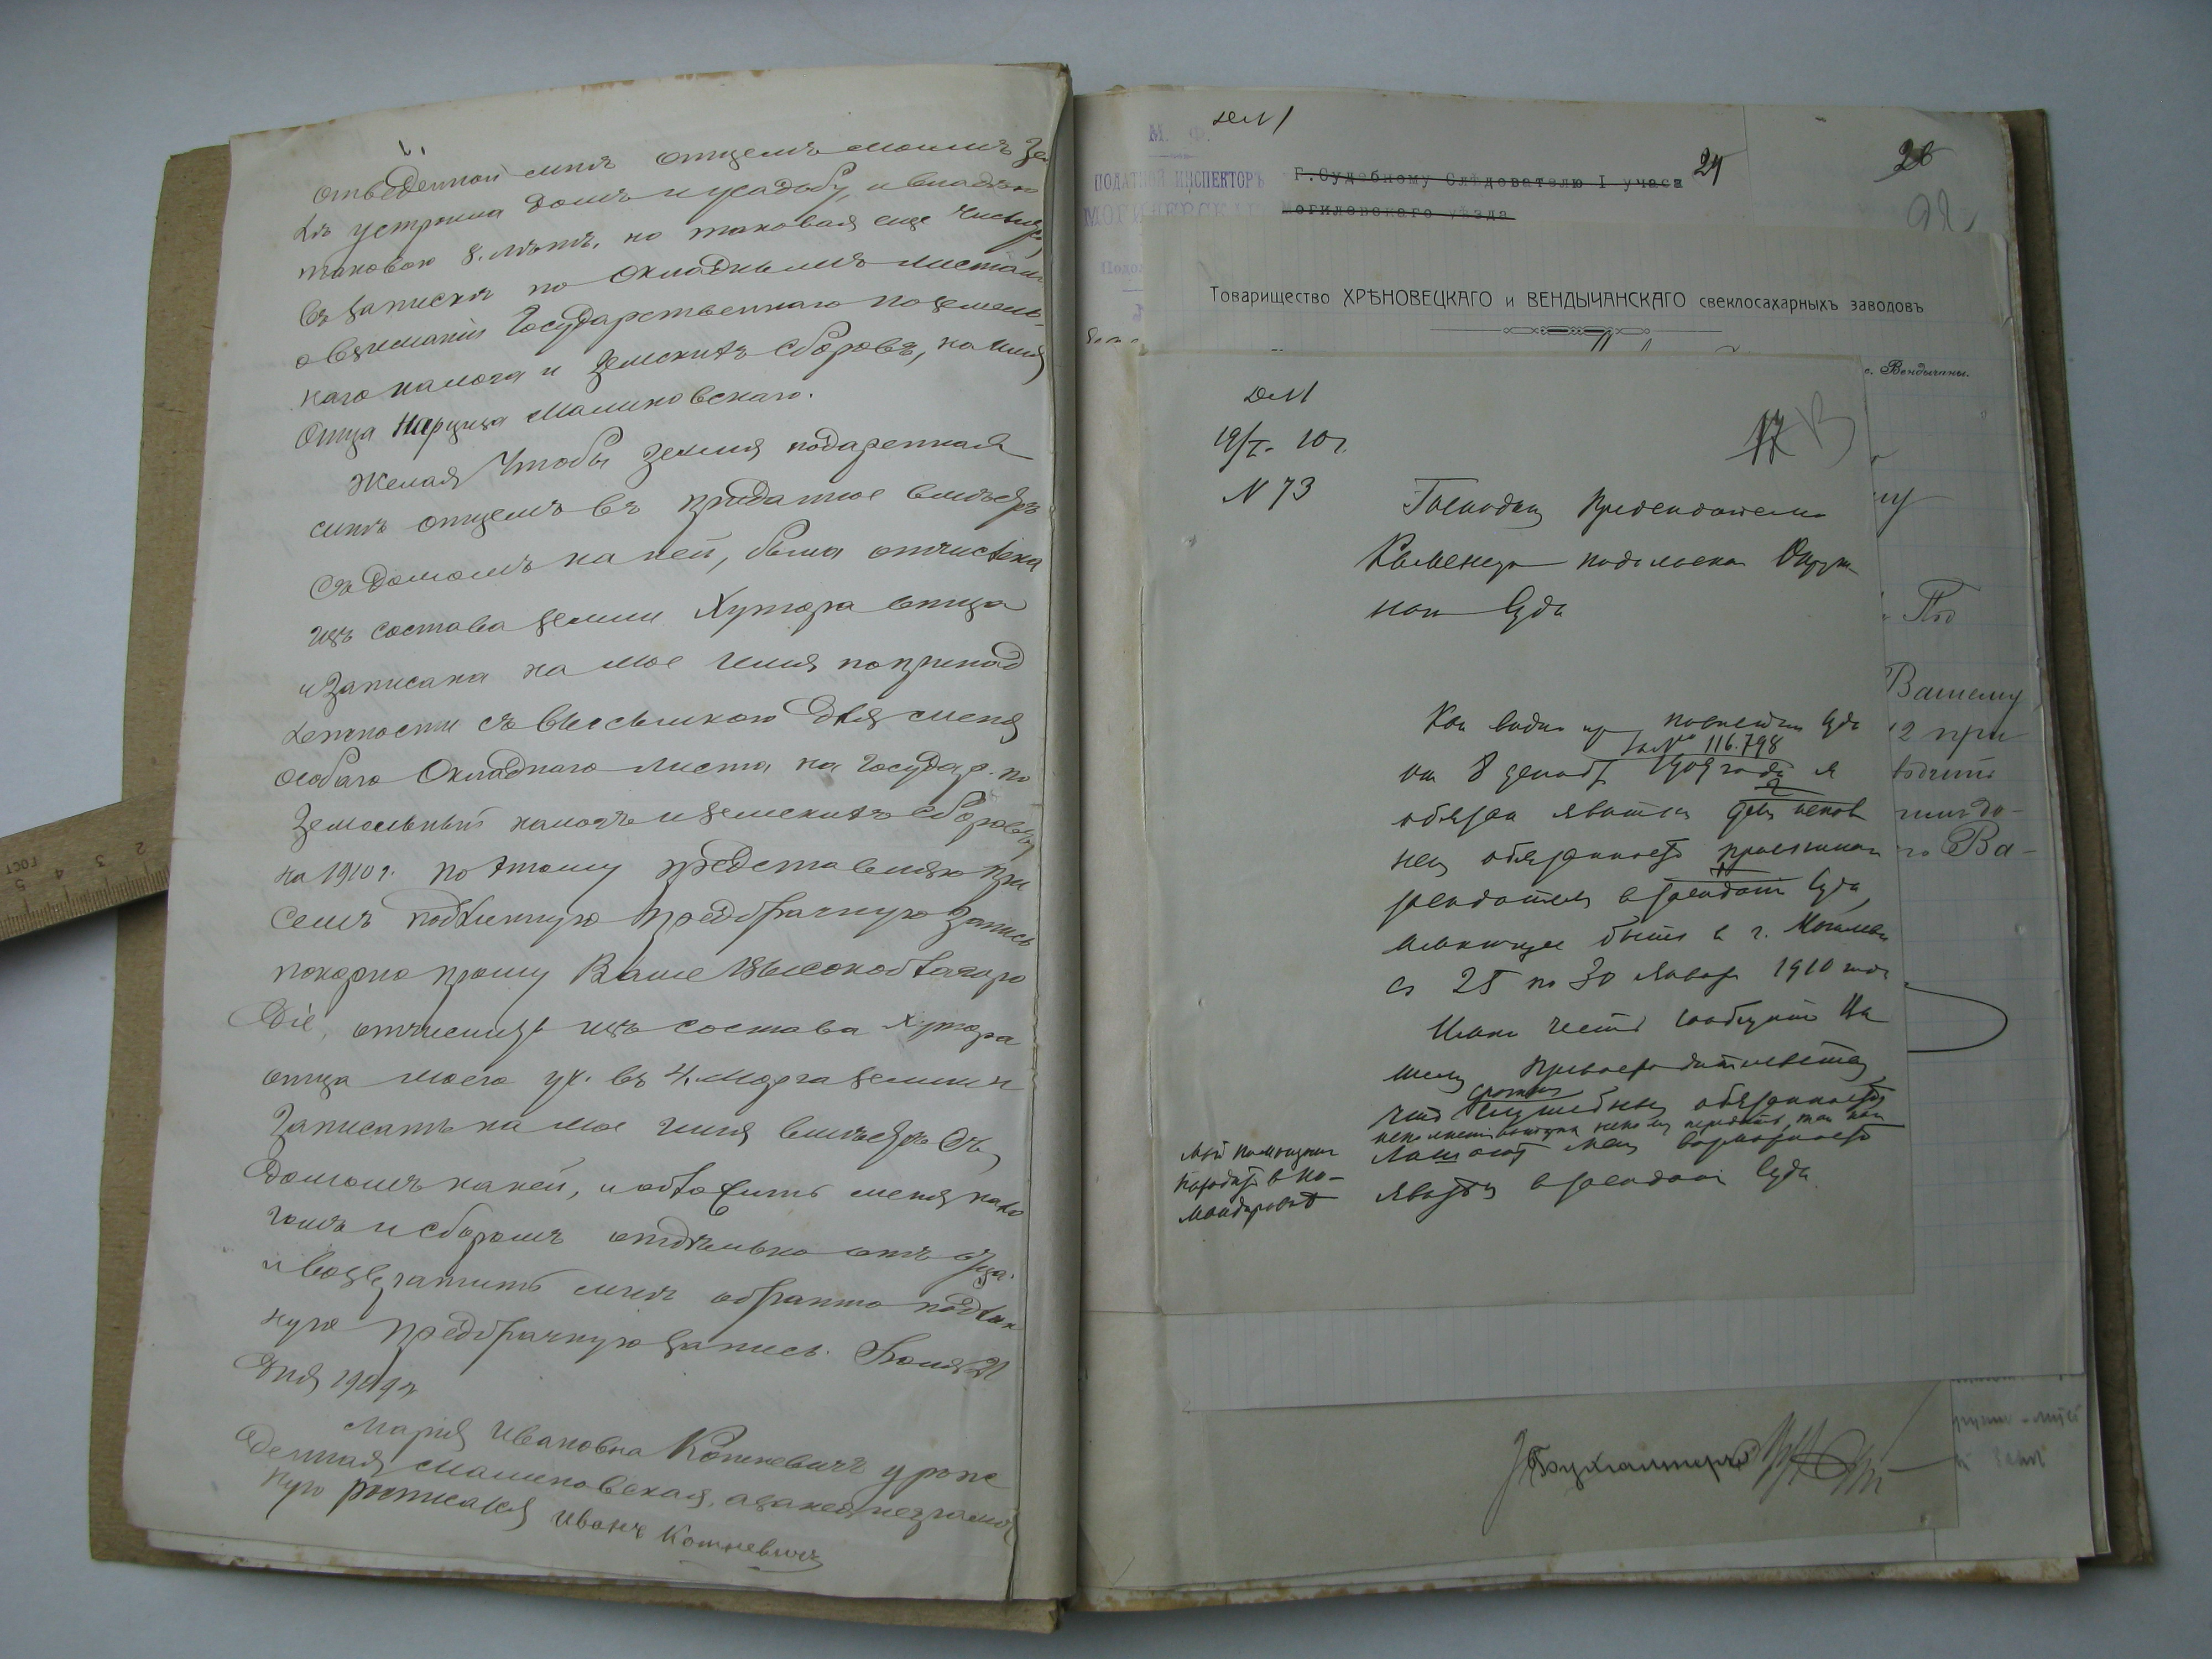 отведенной мнѣ отцемъ моимъ зе
лѣ устроила домъ и усадьбу, и владѣю
таковою 8. лѣтъ, но таковая еще числится
въ запискѣ по окладнымъ листамъ
о взиманіи Государственнаго поземель-
наго налога и Земскихъ сборовъ, на имя
Отца Нарциза Малиновскаго.
Желая Чтобы земля подаренная
мнѣ отцемъ въ приданное вмѣстѣ
Съ домомъ на ней, была отчислена
изъ состава земли Хутора отца
и Записана на мое имя попринад
лежности съ высылкою для меня
особаго Окладнаго листа на Государ. по
Земельный налогъ и земскихъ сборовъ,
на 1910 г. по этому представляю при
семъ подлинную предбрачную запись
покорно прошу Ваше Высокоблагоро
діе, отчислить изъ состава хутора
отца моего ук. въ 4. Морга земли и
Записать на мое имя вмѣстѣ Съ
домомъ на ней, и обложить меня нало
гомъ и сборомъ отдѣльно отъ отца.
и возвратить мнѣ обратно подлин
ную предбрачную запись. Іюля 21
дня 1909 г.
Марія Ивановна Котневичъ урож
денная Малиновская, а за нея неграмот
ную росписался Иванъ Котневичъ
ДМ1
24
26
М. Ф.
ПОДАТНОЙ ИНСПЕКТОРЪ
МОГИЛЕВСКАГО
Г.Судебному Слѣдователю I участ
Могилевскаго уѣзда
Товарищество ХРѢНОВЕЦКАГО и ВЕНДЫЧАНСКАГО свеклосахарныхъ заводовъ
с. Вендычаны.
ДМ1
19/I - 10 г.
N 73
17
Господину Председателю
Каменецъ подольскаго Окруж
наго Суда
Какъ видно изъ повѣстки Суда
за № 116.798
отъ 8 декабр 1909 года я
обязан явиться для испол
ненія обязанностей присяжнаго
засѣдателя в засѣданіи Суда,
имѣющее быть в г. Могилевѣ
с 25 по 30 января 1910 года
Имѣю честь сообщить Ва
шему Превосходительству
что служебныя обязанности
лишают меня возможности
явиться в засѣданіе Суда.
Мой помощник
находится в ко-
мандировкѣ
Под
Вашему
2 при
Ва-
Бухгалтеръ